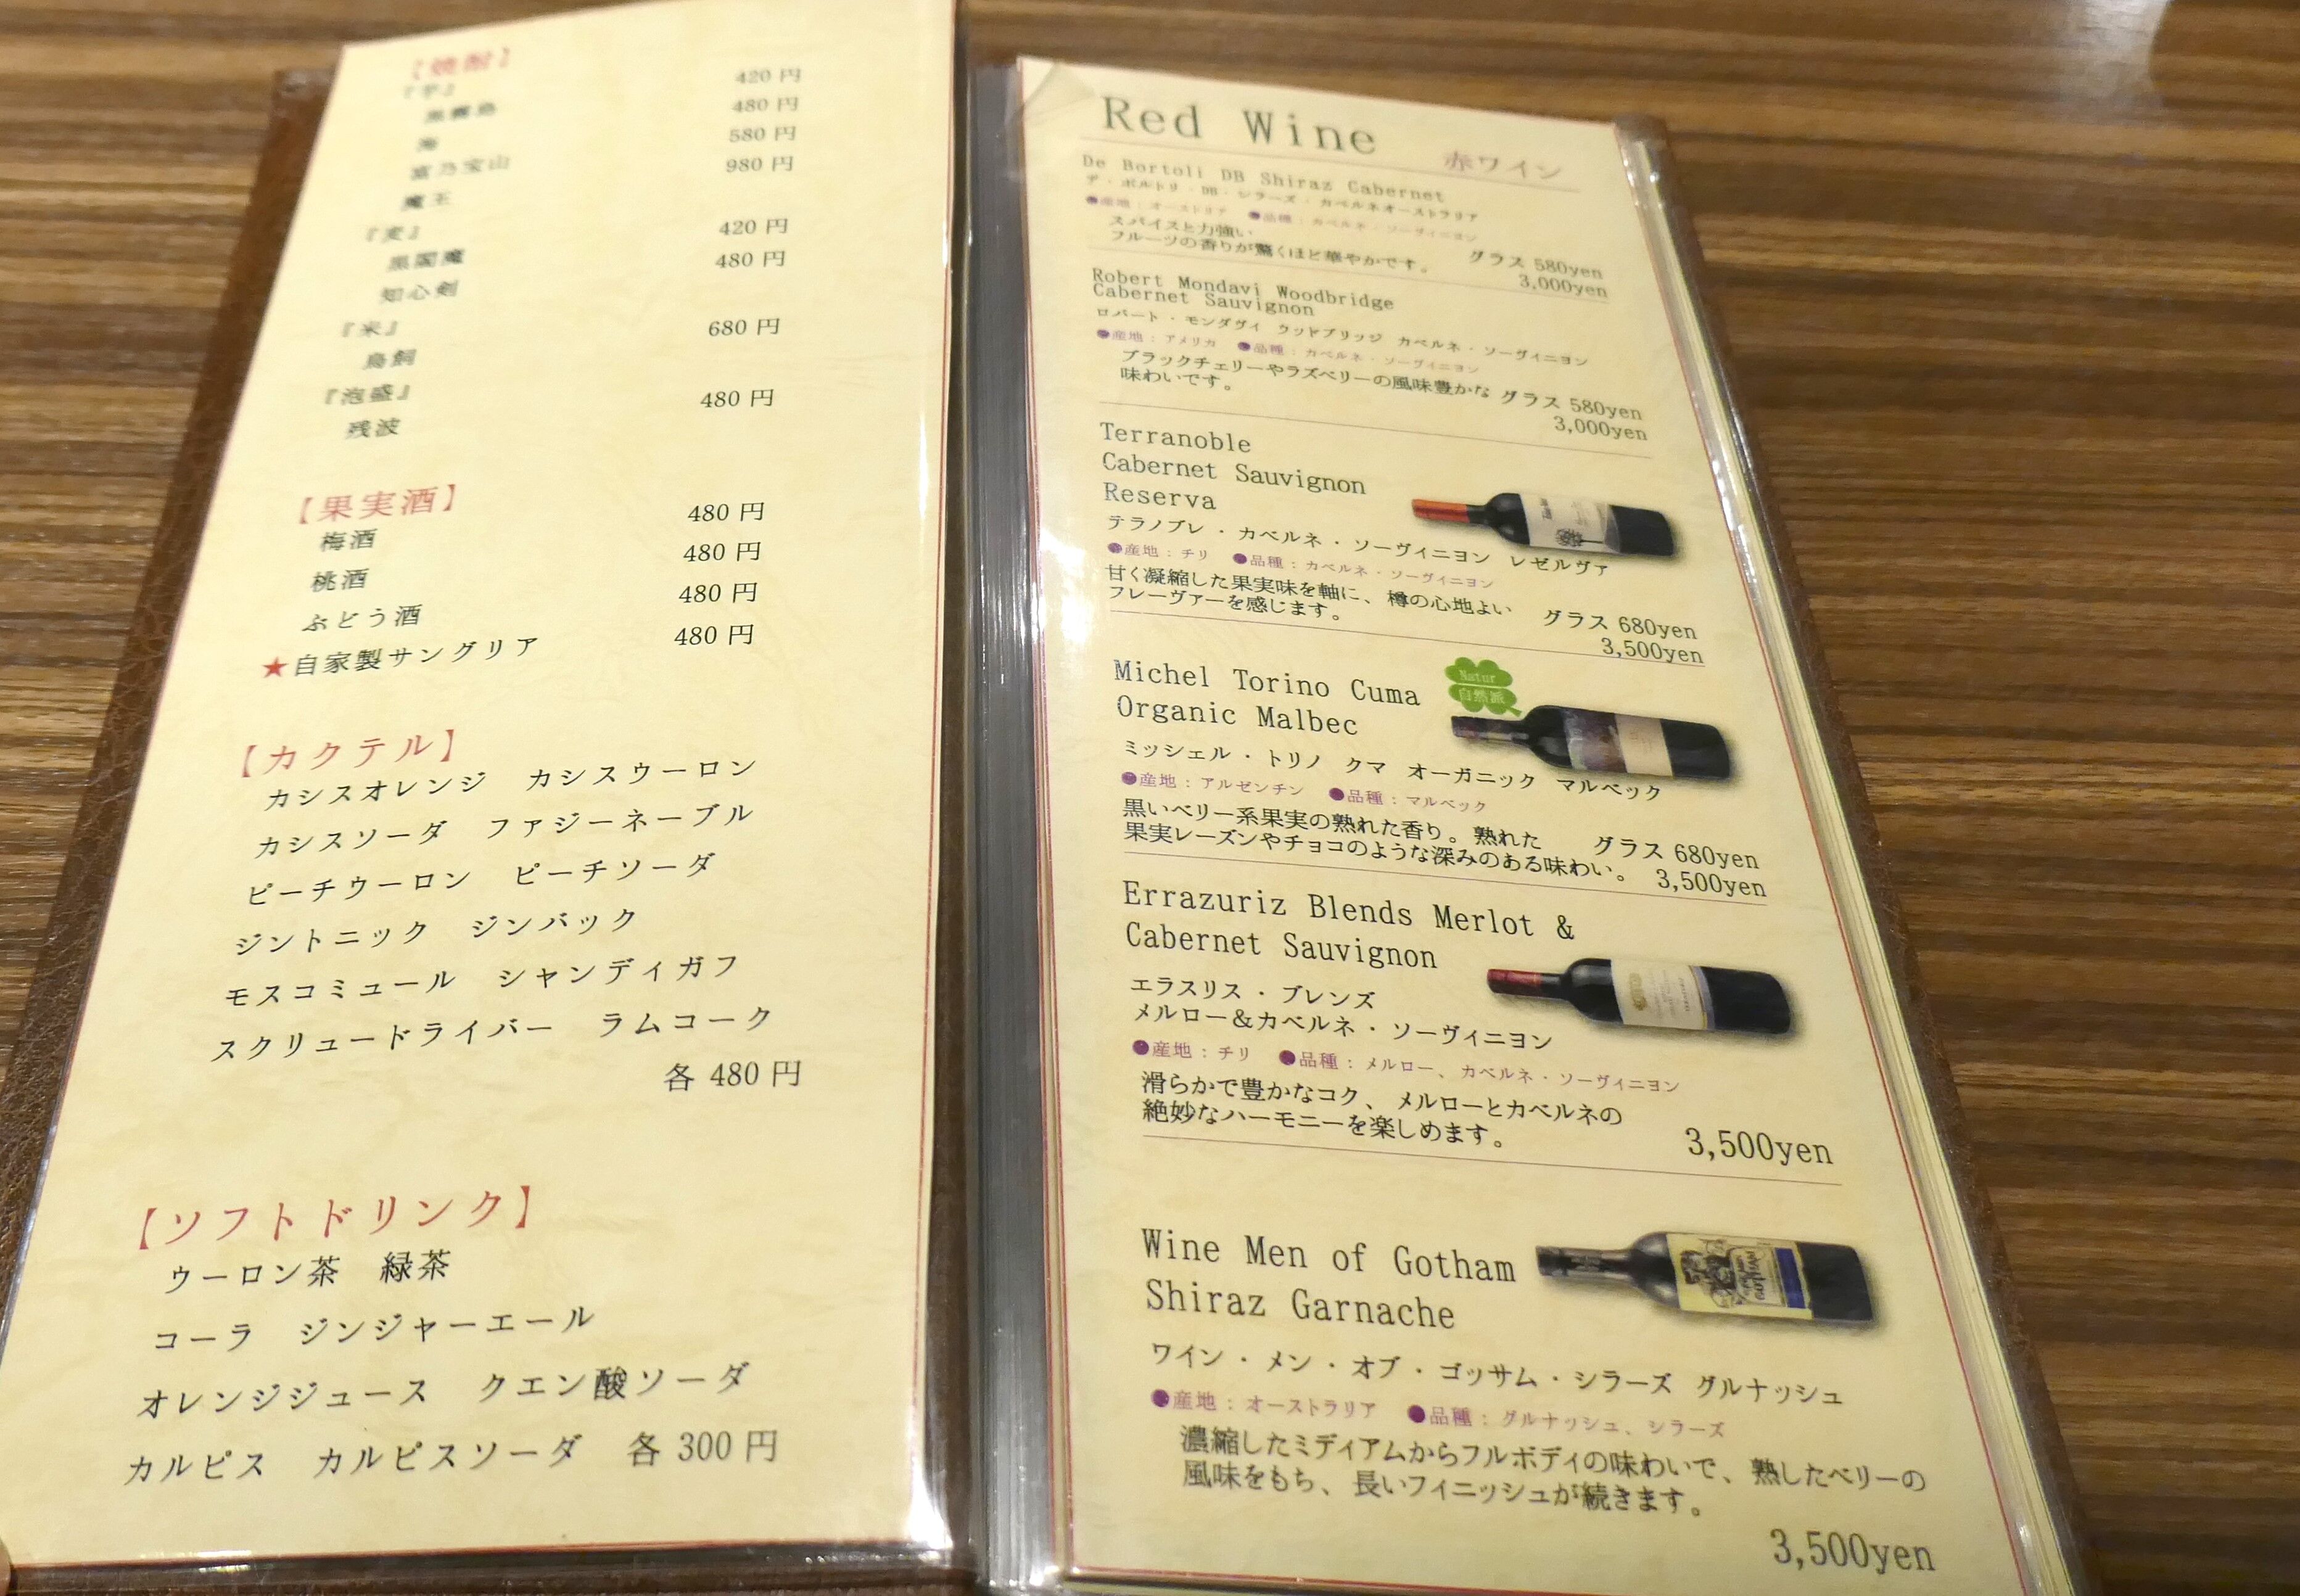 【焼酎】
『芋』
黒霧島 420 円
海 480 円
富乃宝山 580 円
魔王 980 円
『麦』
黒閻魔 420 円
知心剣 480 円
『米』
鳥飼 680 円
『泡盛』
残波 480 円
【果実酒】
梅酒 480 円
桃酒 480 円
ぶどう酒 480 円
★自家製サングリア 480 円
【カクテル】
カシスオレンジ カシスウーロン
カシスソーダ ファジーネーブル
ピーチウーロン ピーチソーダ
ジントニック ジンバック
モスコミュール シャンディガフ
スクリュードライバー ラムコーク
各 480 円
【ソフトドリンク】
ウーロン茶 緑茶
コーラ ジンジャーエール
オレンジジュース クエン酸ソーダ
カルピス カルピスソーダ 各 300 円
Red Wine 赤ワイン
De Bortoli DB Shiraz Cabernet
デ・ボルトリ・DB・シラーズ・カベルネオーストラリア
●産地：オーストラリア ●品種：カベルネ・ソーヴィニヨン
スパイスと力強い
フルーツの香りが驚くほど華やかです。 グラス 580yen
3,000yen
Robert Mondavi Woodbridge
Cabernet Sauvignon
ロバート・モンダヴィ ウッドブリッジ カベルネ・ソーヴィニヨン
●産地：アメリカ ●品種：カベルネ・ソーヴィニヨン
ブラックチェリーやラズベリーの風味豊かな グラス 580yen
味わいです。 3,000yen
Terranoble
Cabernet Sauvignon
Reserva
テラノブレ・カベルネ・ソーヴィニヨン レゼルヴァ
●産地：チリ ●品種：カベルネ・ソーヴィニヨン
甘く凝縮した果実味を軸に、樽の心地よい グラス 680yen
フレーヴァーを感じます。 3,500yen
Natur
自然派
Michel Torino Cuma
Organic Malbec
ミッシェル・トリノ クマ オーガニック マルベック
●産地：アルゼンチン ●品種：マルベック
黒いベリー系果実の熟れた香り。熟れた グラス 680yen
果実レーズンやチョコのような深みのある味わい。 3,500yen
Errazuriz Blends Merlot &
Cabernet Sauvignon
エラスリス・ブレンズ
メルロー＆カベルネ・ソーヴィニヨン
●産地：チリ ●品種：メルロー、カベルネ・ソーヴィニヨン
滑らかで豊かなコク、メルローとカベルネの
絶妙なハーモニーを楽しめます。 3,500yen
Wine Men of Gotham
Shiraz Garnache
ワイン・メン・オブ・ゴッサム・シラーズ グルナッシュ
●産地：オーストラリア ●品種：グルナッシュ、シラーズ
濃縮したミディアムからフルボディの味わいで、熟したベリーの
風味をもち、長いフィニッシュが続きます。
3,500yen